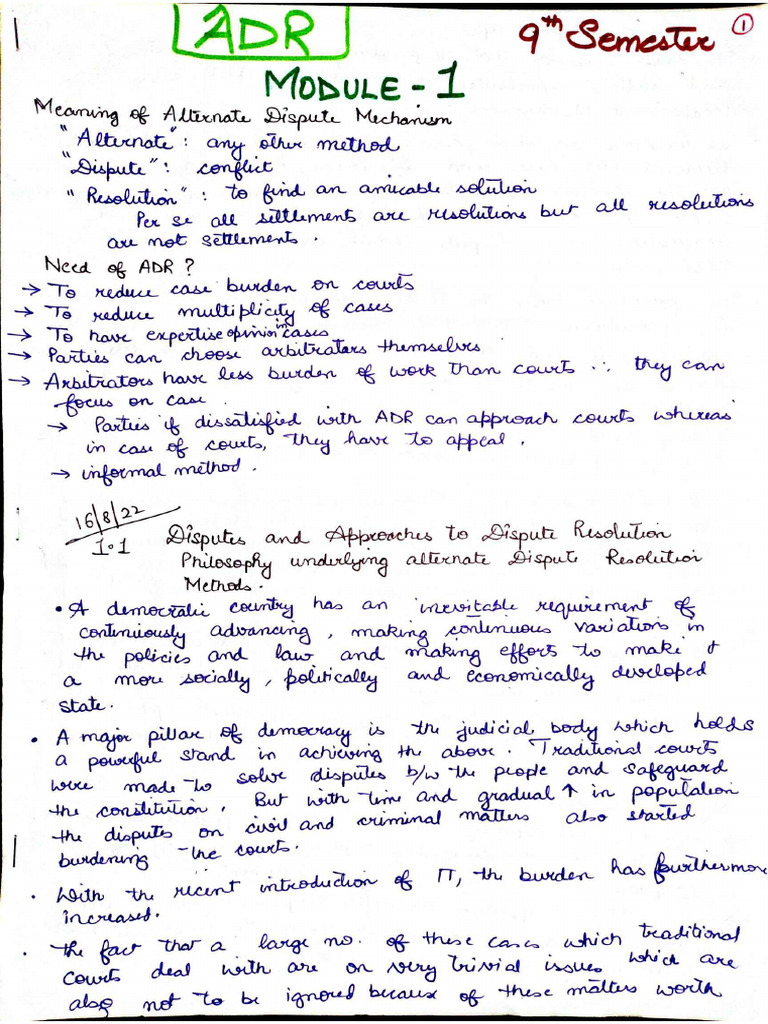 ADR
9th Semester
1
MODULE - 1
Meaning of Alternate Dispute Mechanism
"Alternate": any other method
"Dispute": conflict
"Resolution": to find an amicable solution
Per se all settlements are resolutions but all resolutions
are not settlements.
Need of ADR?
→ To reduce case burden on courts
→ To reduce multiplicity of cases
→ To have expertise opinion in cases
→ Parties can choose arbitrators themselves
→ Arbitrators have less burden of work than courts ∴ they can
focus on case.
→ Parties if dissatisfied with ADR can approach courts whereas
in case of courts, they have to appeal.
→ informal method.
16/8/22
1.1 Disputes and Approaches to Dispute Resolution
Philosophy underlying alternate Dispute Resolution
Methods.
• A democratic country has an inevitable requirement of
continuously advancing, making continuous variations in
the policies and law and making efforts to make it
a more socially, politically and economically developed
state.
• A major pillar of democracy is the judicial body which holds
a powerful stand in achieving the above. Traditional courts
were made to solve disputes b/w the people and safeguard
the constitution. But with time and gradual ↑ in population
the disputes on civil and criminal matters also started
burdening the courts.
• With the recent introduction of IT, the burden has furthermore
increased.
• The fact that a large no. of these cases which traditional
courts deal with are on very trivial issues which are
also not to be ignored because of these matters worth